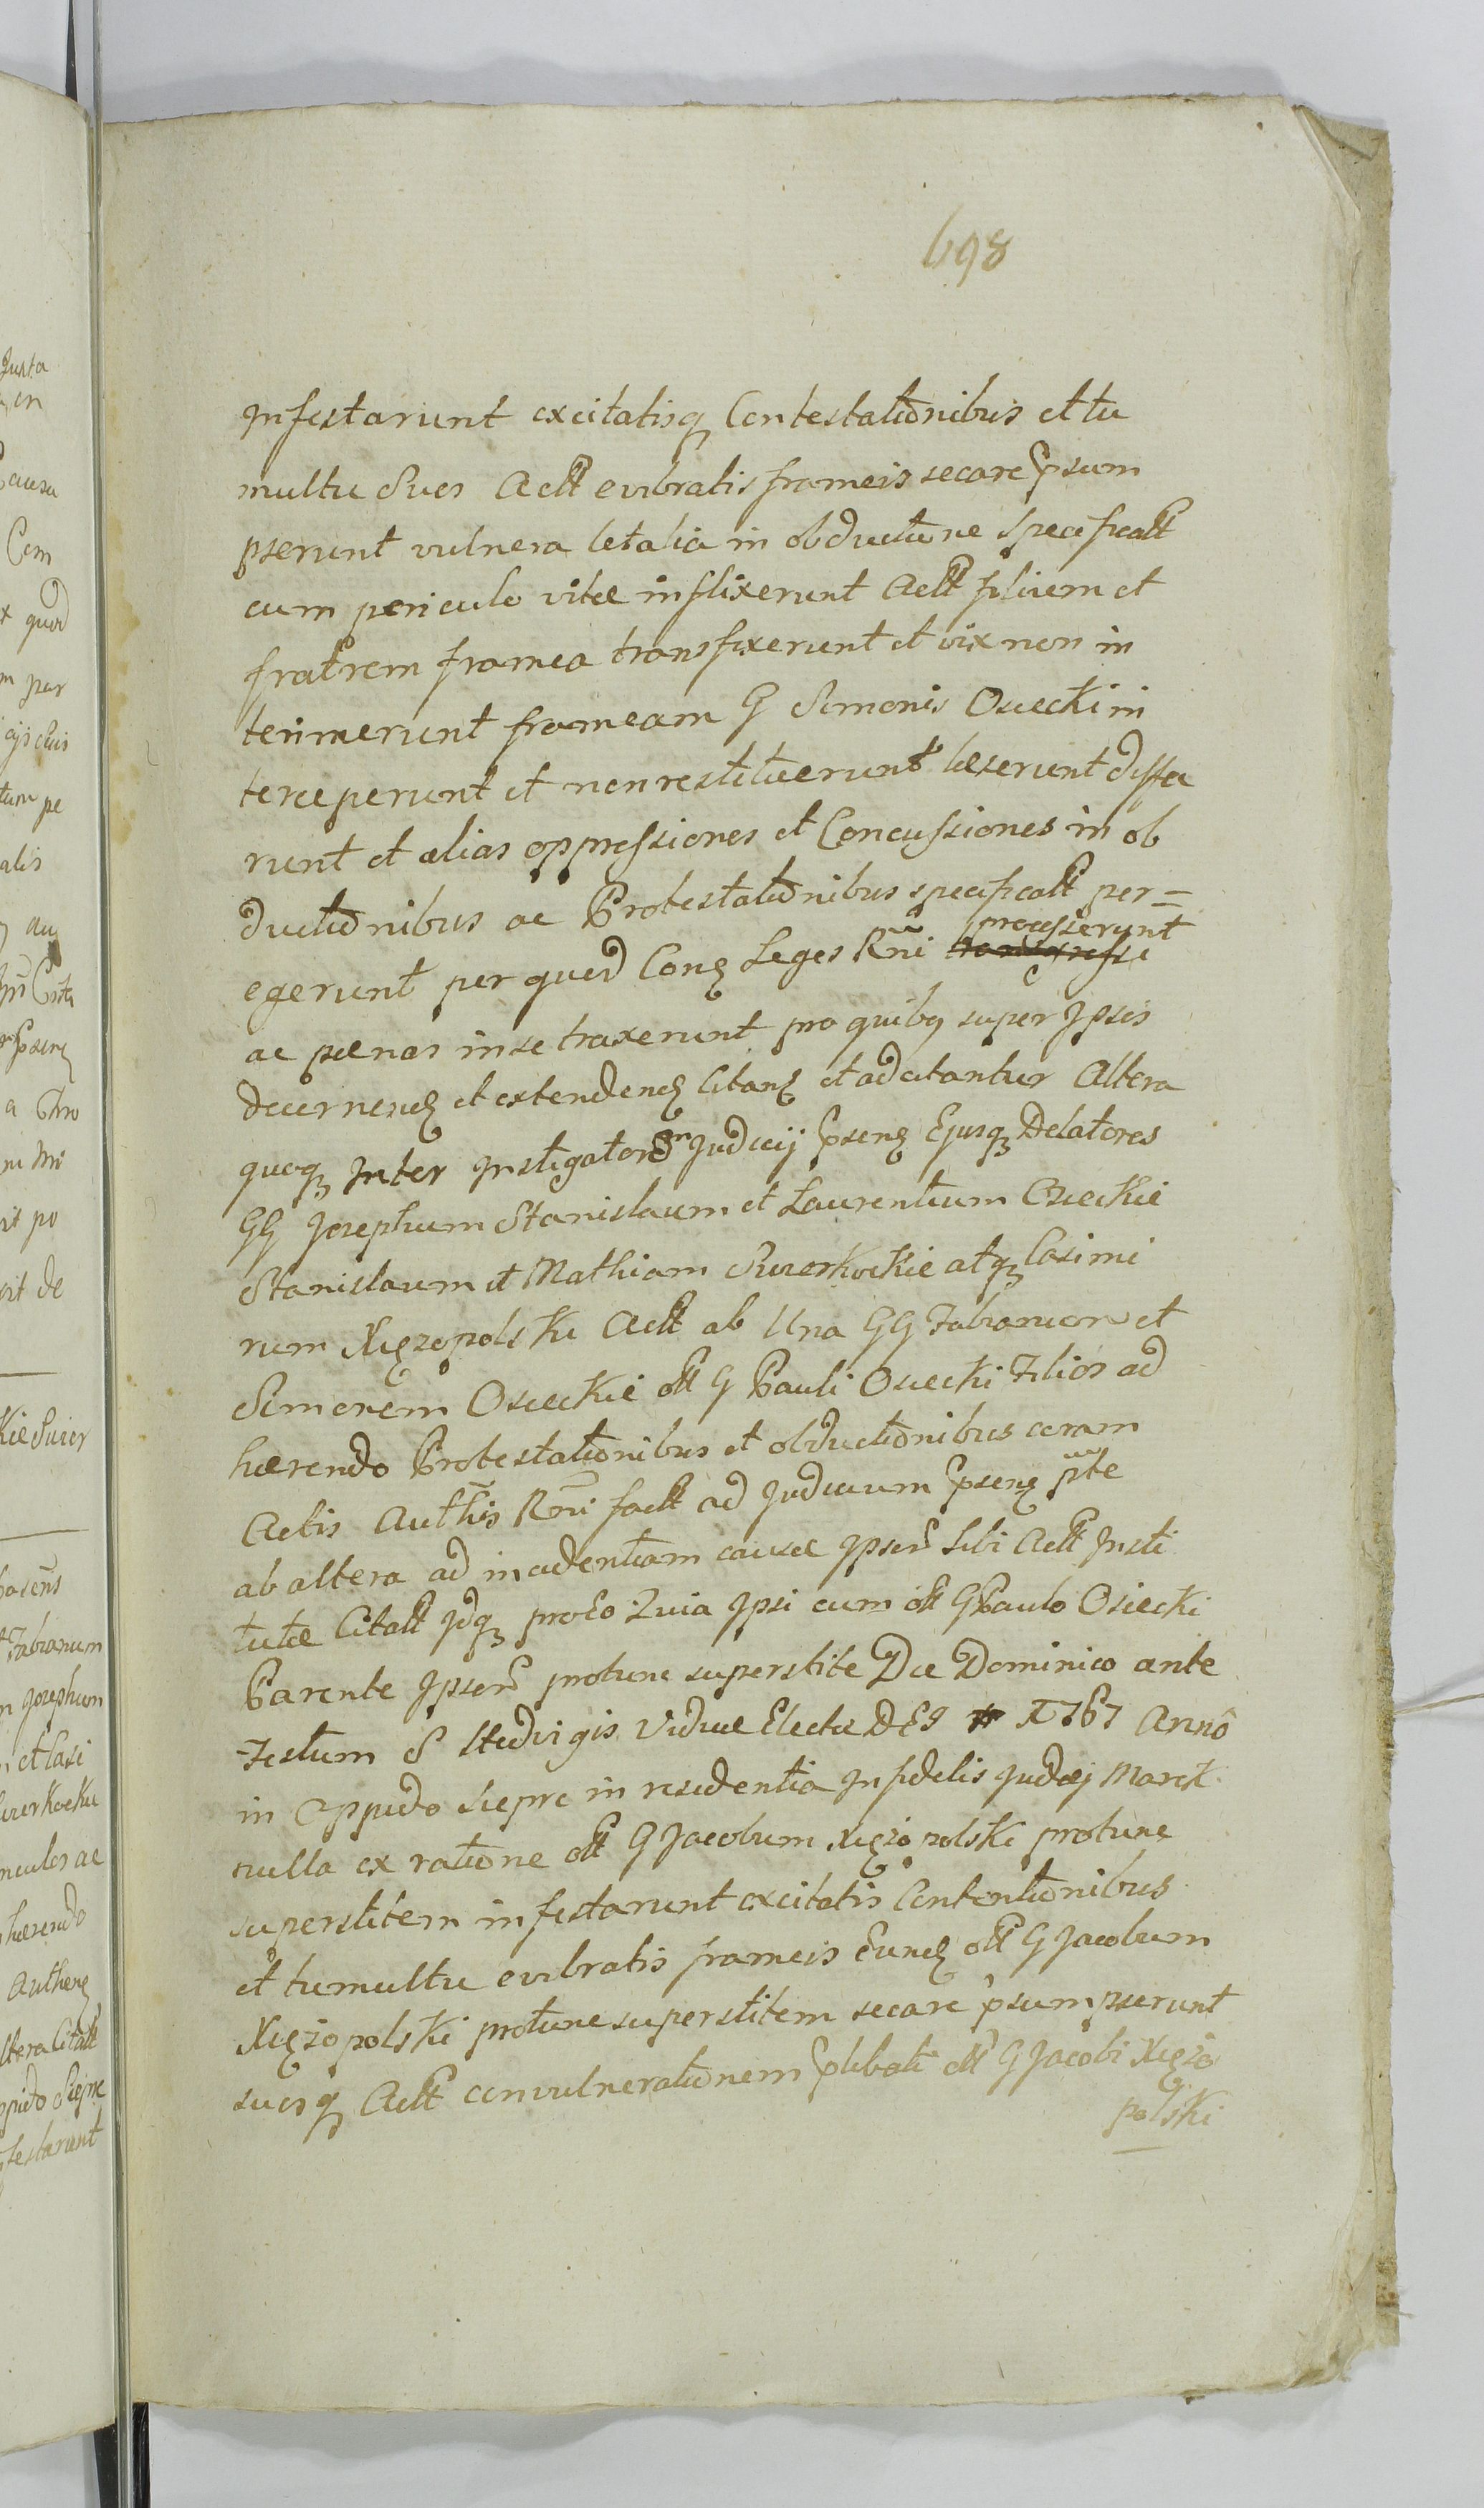 698
Infestarunt excitatisq Contestationibus et tu
multu Suos Actt evibratis frameis secare Epsum
pserunt vulnera letalia in obductione specificatt
cum periculo vitæ inflixerunt Actt filium et
fratrem framea transfixerunt et vix non in
terimerunt frameam G Simonis Osiecki in
terceperunt et non restituerunt læserunt diffa
runt et alias oppressiones et Concussiones in ob
ductionibus ac Protestationibus specificatt per=
egerunt per quod Conq Leges Rni processerunt
ac pænas in se traxerunt pro quibq super Ipsis
decernenq et extendenq Citanq et adcitantur Altera
quoq Inter Instigatorem Judicij Epsenq Ejusq Delatores
GG Josephum Stanislaum et Laurentium Osieckie
Stanislaum et Mathiam Swierkockie atq Casimi
rum Xięzopolski Actt ab Una GG Fabianum et
Simonem Osieckie ott G Pauli Osiecki Filios ad
hærendo Protestationibus et obductionibus coram
Actis Authis Rni factt ad Judicium Epsenq pnte
ab altera ad incidentiam causæ Ipsor sibi Actt Insti
tutæ Citatt Idq pro Eo Quia Ipsi cum ott G Paulo Osiecki
Parente Ipsor protunc superstite Die Dominico ante
Festum S Hedvigis Viduæ Electæ DEI 1767 Annô
in Oppido Siepre in residentia Infidelis Judæj Marek
nulla ex ratione ott G Jacobum Xięzopolski protunc
superstitem infestarunt excitatis Contentionibus
et tumultu evibratis frameis Eunq ott G Jacobum
Xięzopolski protunc superstitem secare psumpserunt
suosq Actt convulnerationem Eplibati ott G Jacobi Xięzo
polski